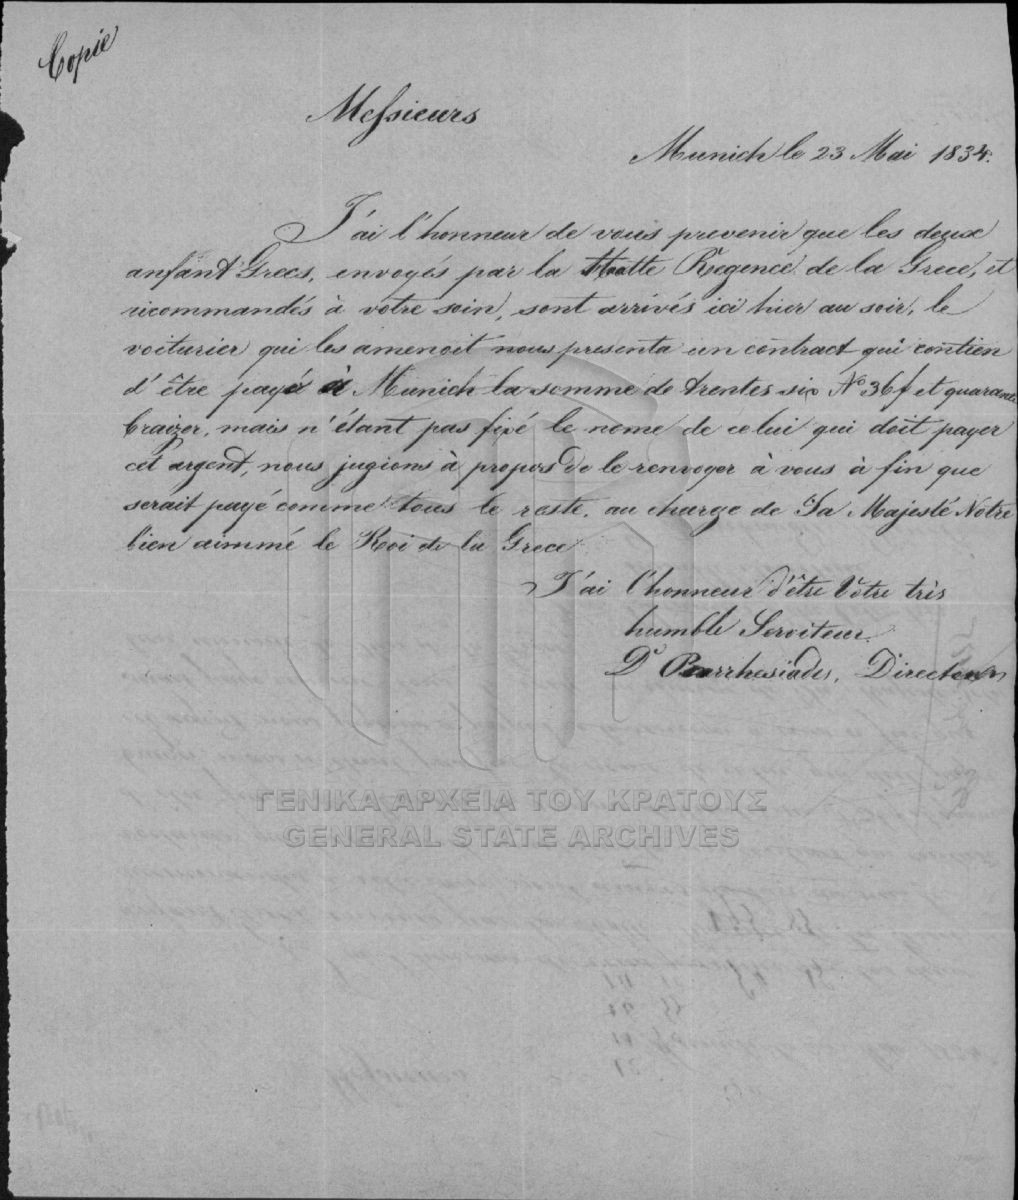 Copie
Messieurs
Munich le 23 Mai 1834.
J'ai l'honneur de vous prevenir que les deux
anfant Grecs, envoyés par la Haulte Regence de la Grece, et
ricommandés à votre soin, sont arrivés ici hier au soir, le
voiturier qui les amenoit nous presenta un contract qui contien
d'être payé à Munich la somme de trentes six No 36 f et quarante
craizer, mais n'étant pas fixé le nome de celui qui doit payer
cet argent, nous jugions à propos de le renvoyer à vous à fin que
serait payé comme tous le reste, au charge de Sa Majesté Notre
bien aimmé le Roi de la Grece
J'ai l'honneur d'être Vôtre très
humble Serviteur
Dr Parrhesiades, Directeur
ΓΕΝΙΚΑ ΑΡΧΕΙΑ ΤΟΥ ΚΡΑΤΟΥΣ
GENERAL STATE ARCHIVES